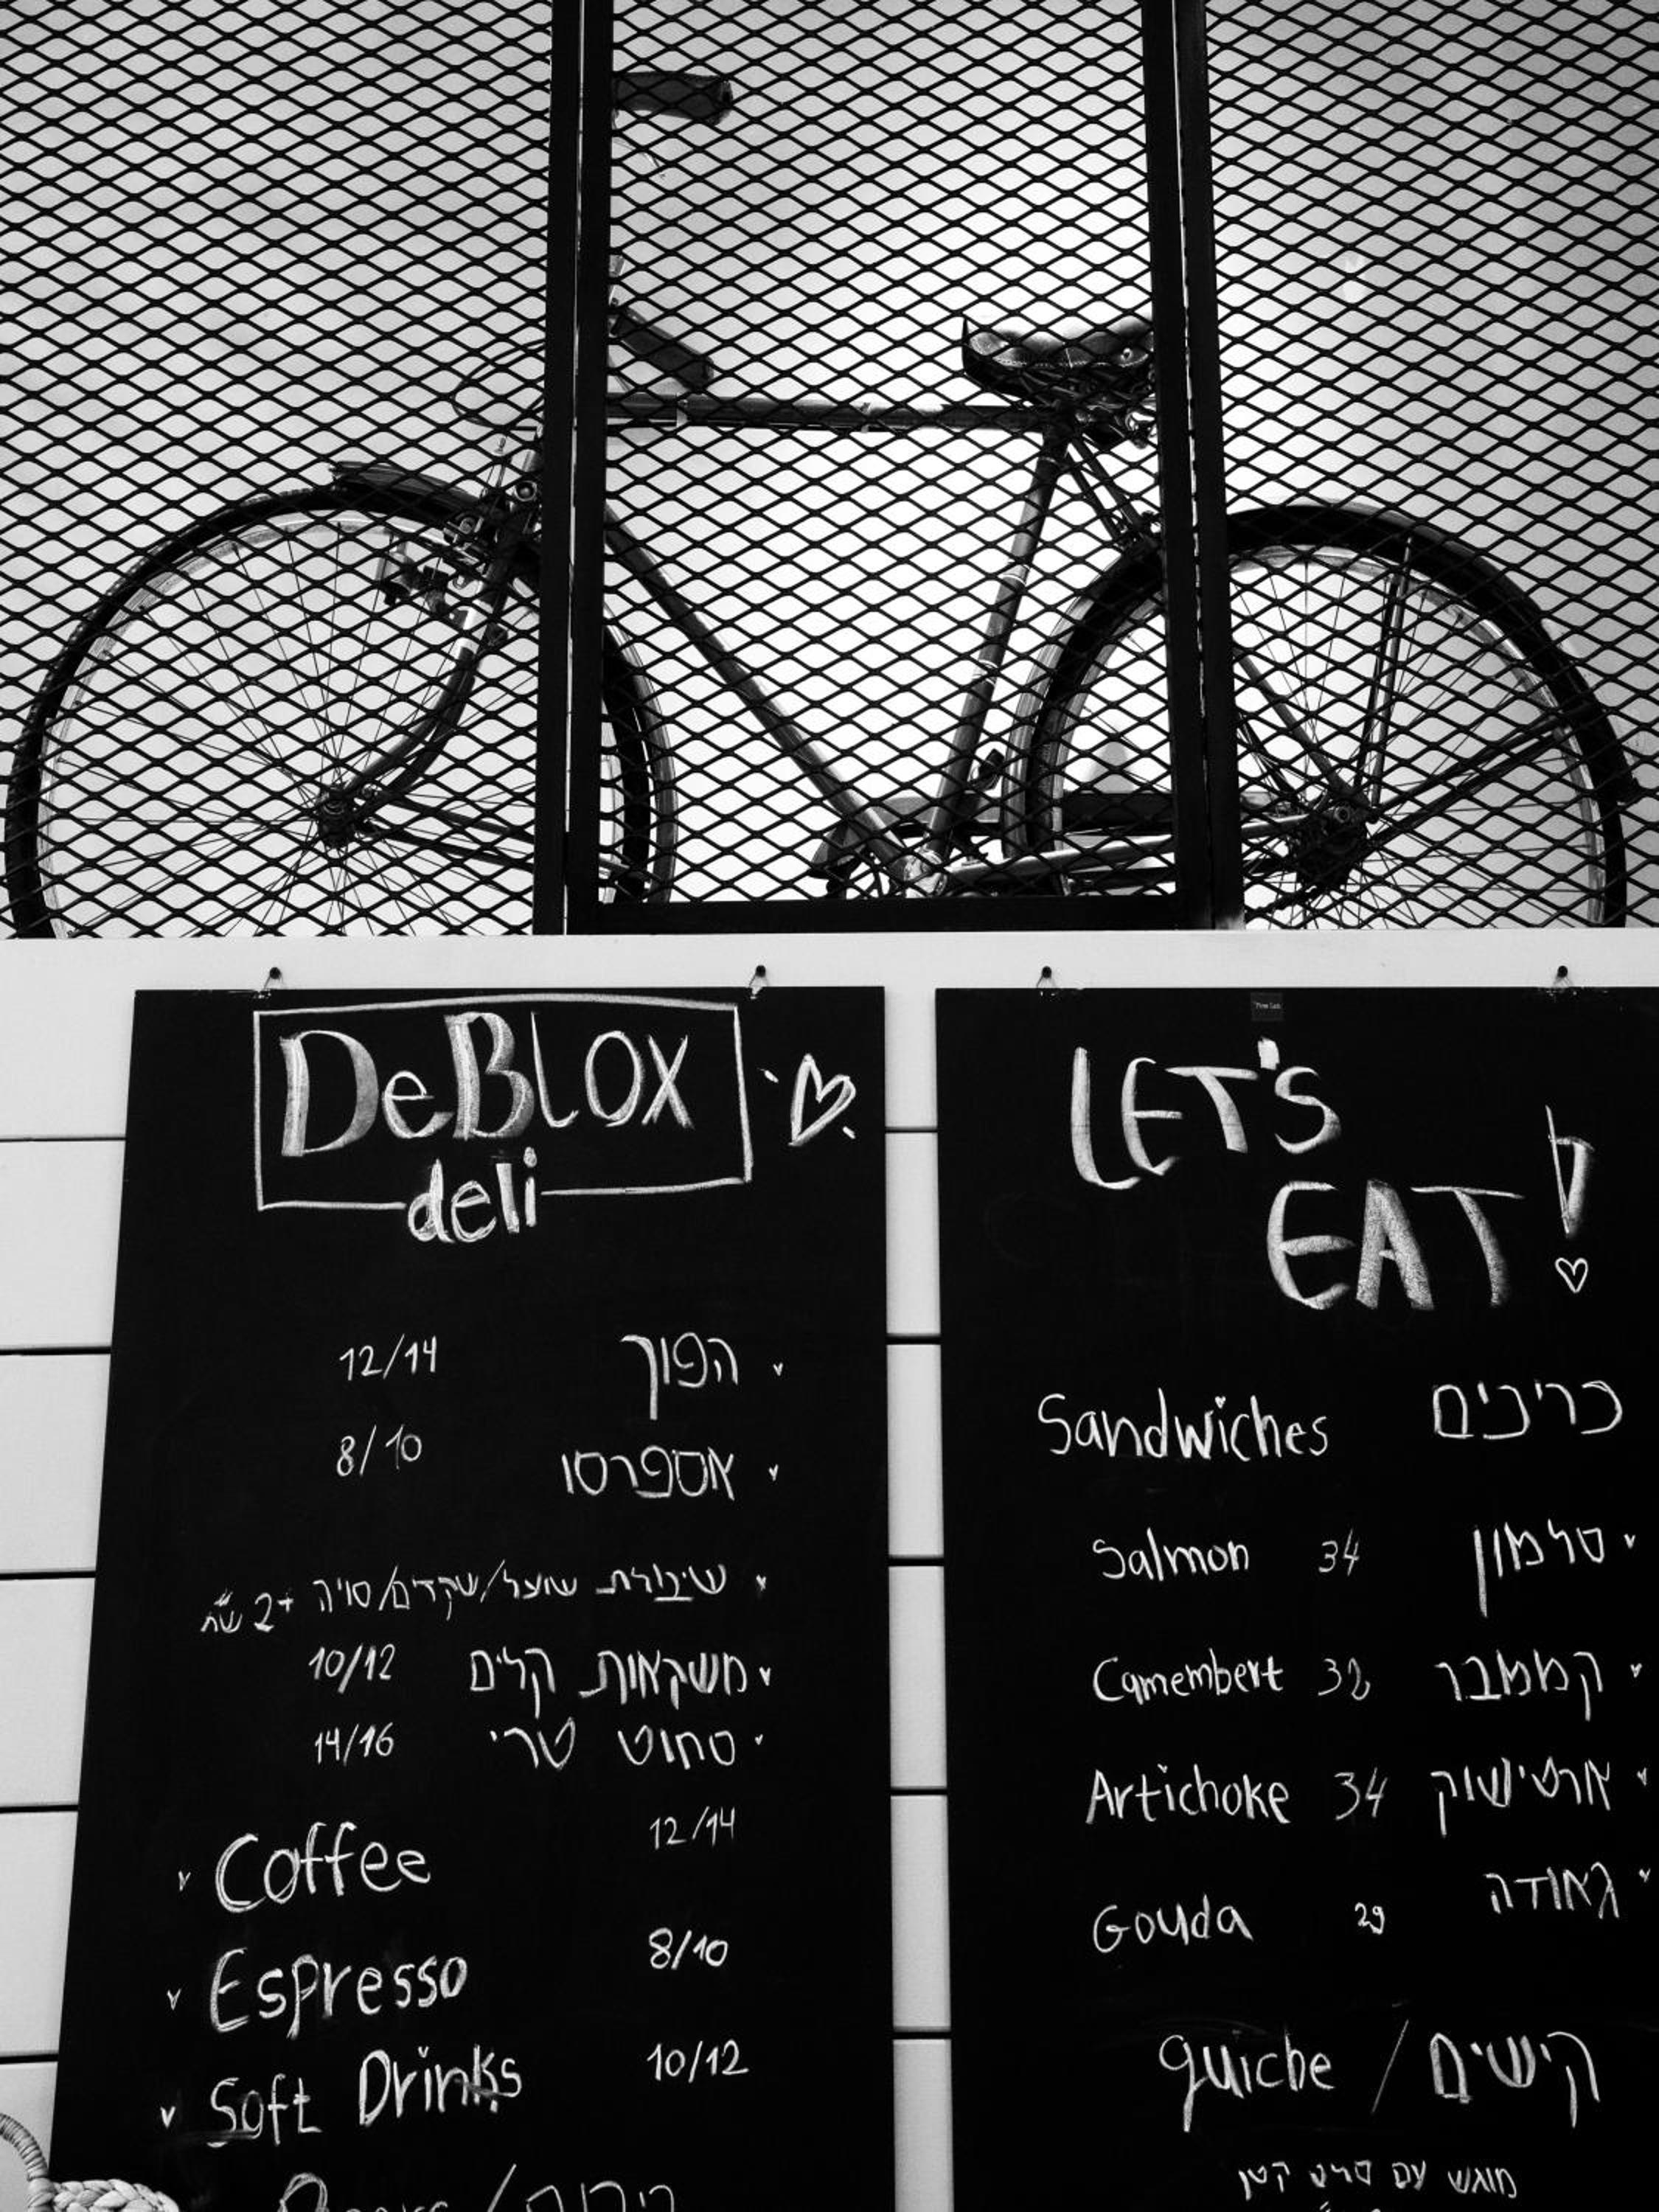 DeBLOX
deli
הפוך 12/14
אספרסו 8/10
שיבולת שועל/שקדים/סויה +2 ש״ח
משקאות קלים 10/12
סחוט טרי 14/16
Coffee 12/14
Espresso 8/10
Soft Drinks 10/12
LET'S
EAT!
Sandwiches כריכים
Salmon 34 סלמון
Camembert 32 קממבר
Artichoke 34 ארטישוק
Gouda 29 גאודה
quiche / קישים
מוגש עם סלט קטן